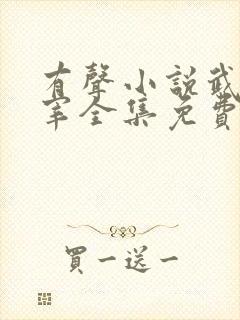 有聲小說武
宰全集免費
買一送一